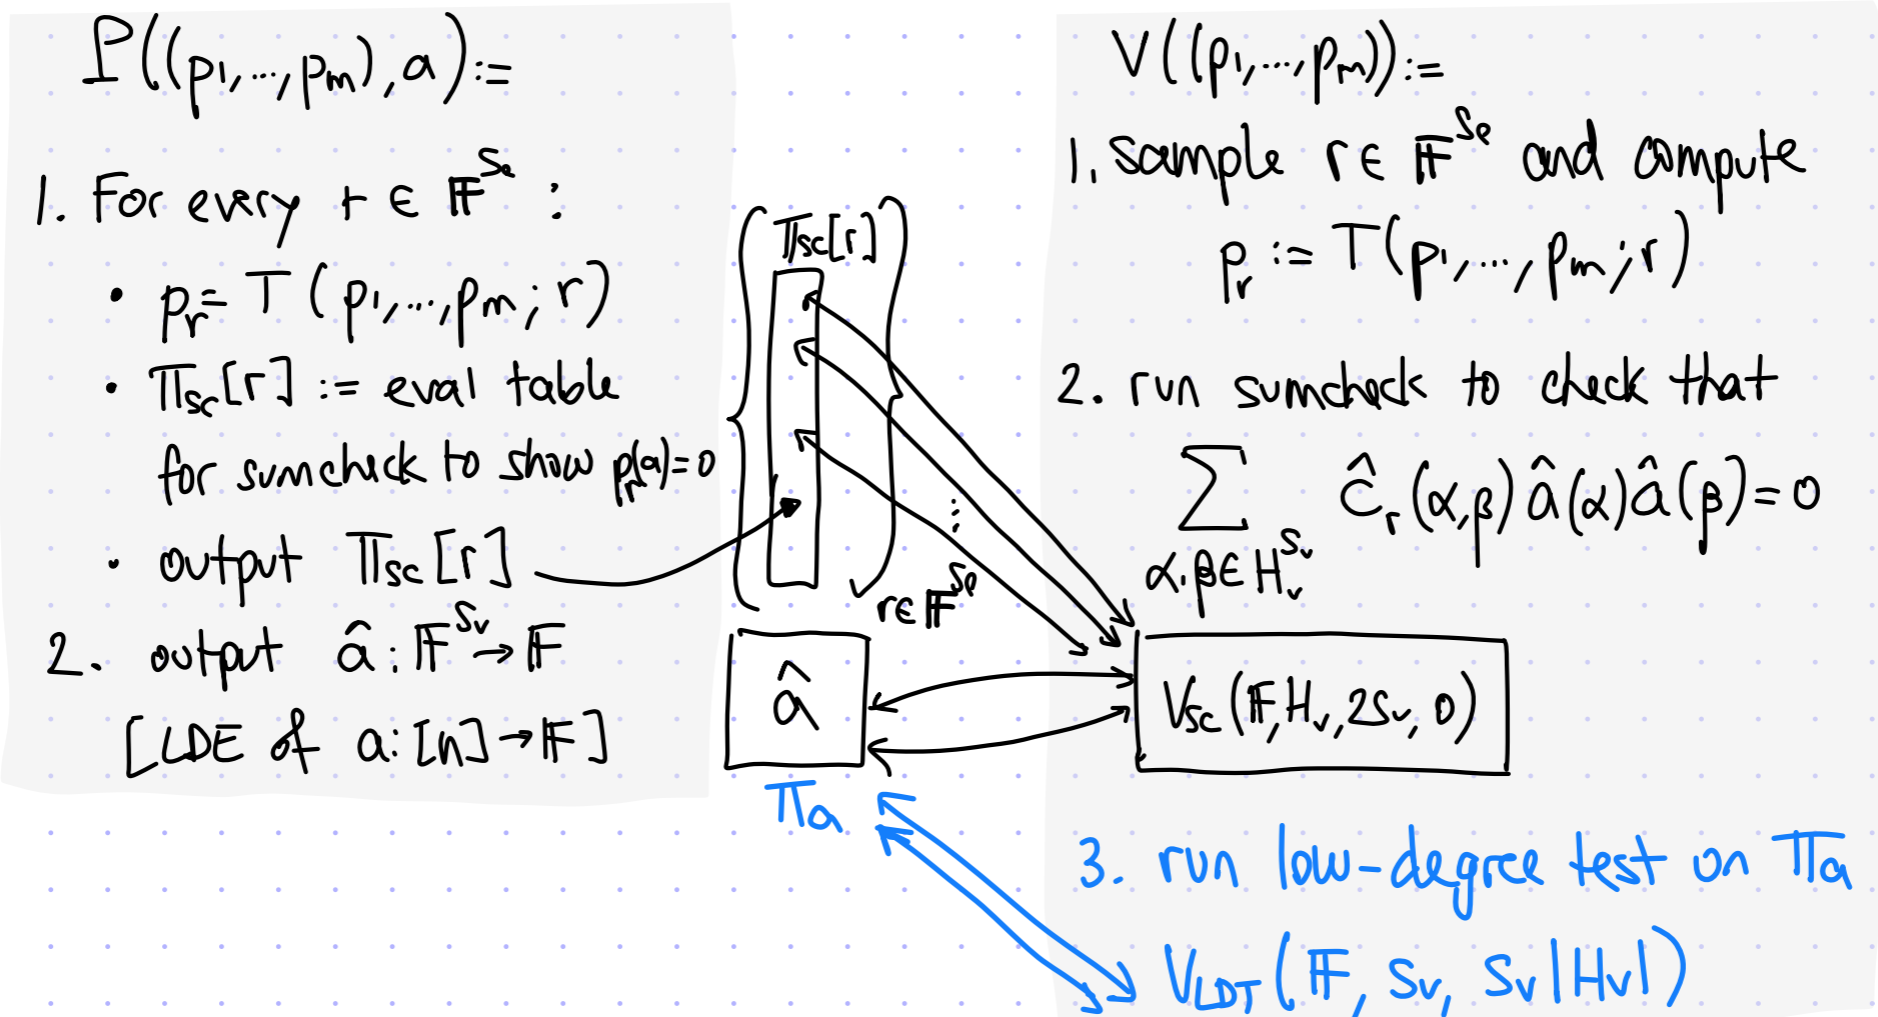 P((p₁,...,pₘ),a):=
1. For every r ∈ 𝔽^Se :
• pᵣ= T(p₁,...,pₘ; r)
• Πsc[r] := eval table
for sumcheck to show pᵣ(a)=0
• output Πsc[r]
2. output â: 𝔽^Sv → 𝔽
[LDE of a: [n] → 𝔽]
Πsc[r]
r∈𝔽^Se
â
Πa
V((p₁,...,pₘ)):=
1. sample r ∈ 𝔽^Se and compute
pᵣ := T(p₁,...,pₘ;r)
2. run sumcheck to check that
∑ ĉᵣ(α,β) â(α) â(β)=0
α,β∈Hᵥ^Sv
⋮
Vsc(𝔽,Hᵥ,2Sv,0)
3. run low-degree test on Πa
VLDT(𝔽, Sv, Sv|Hv|)